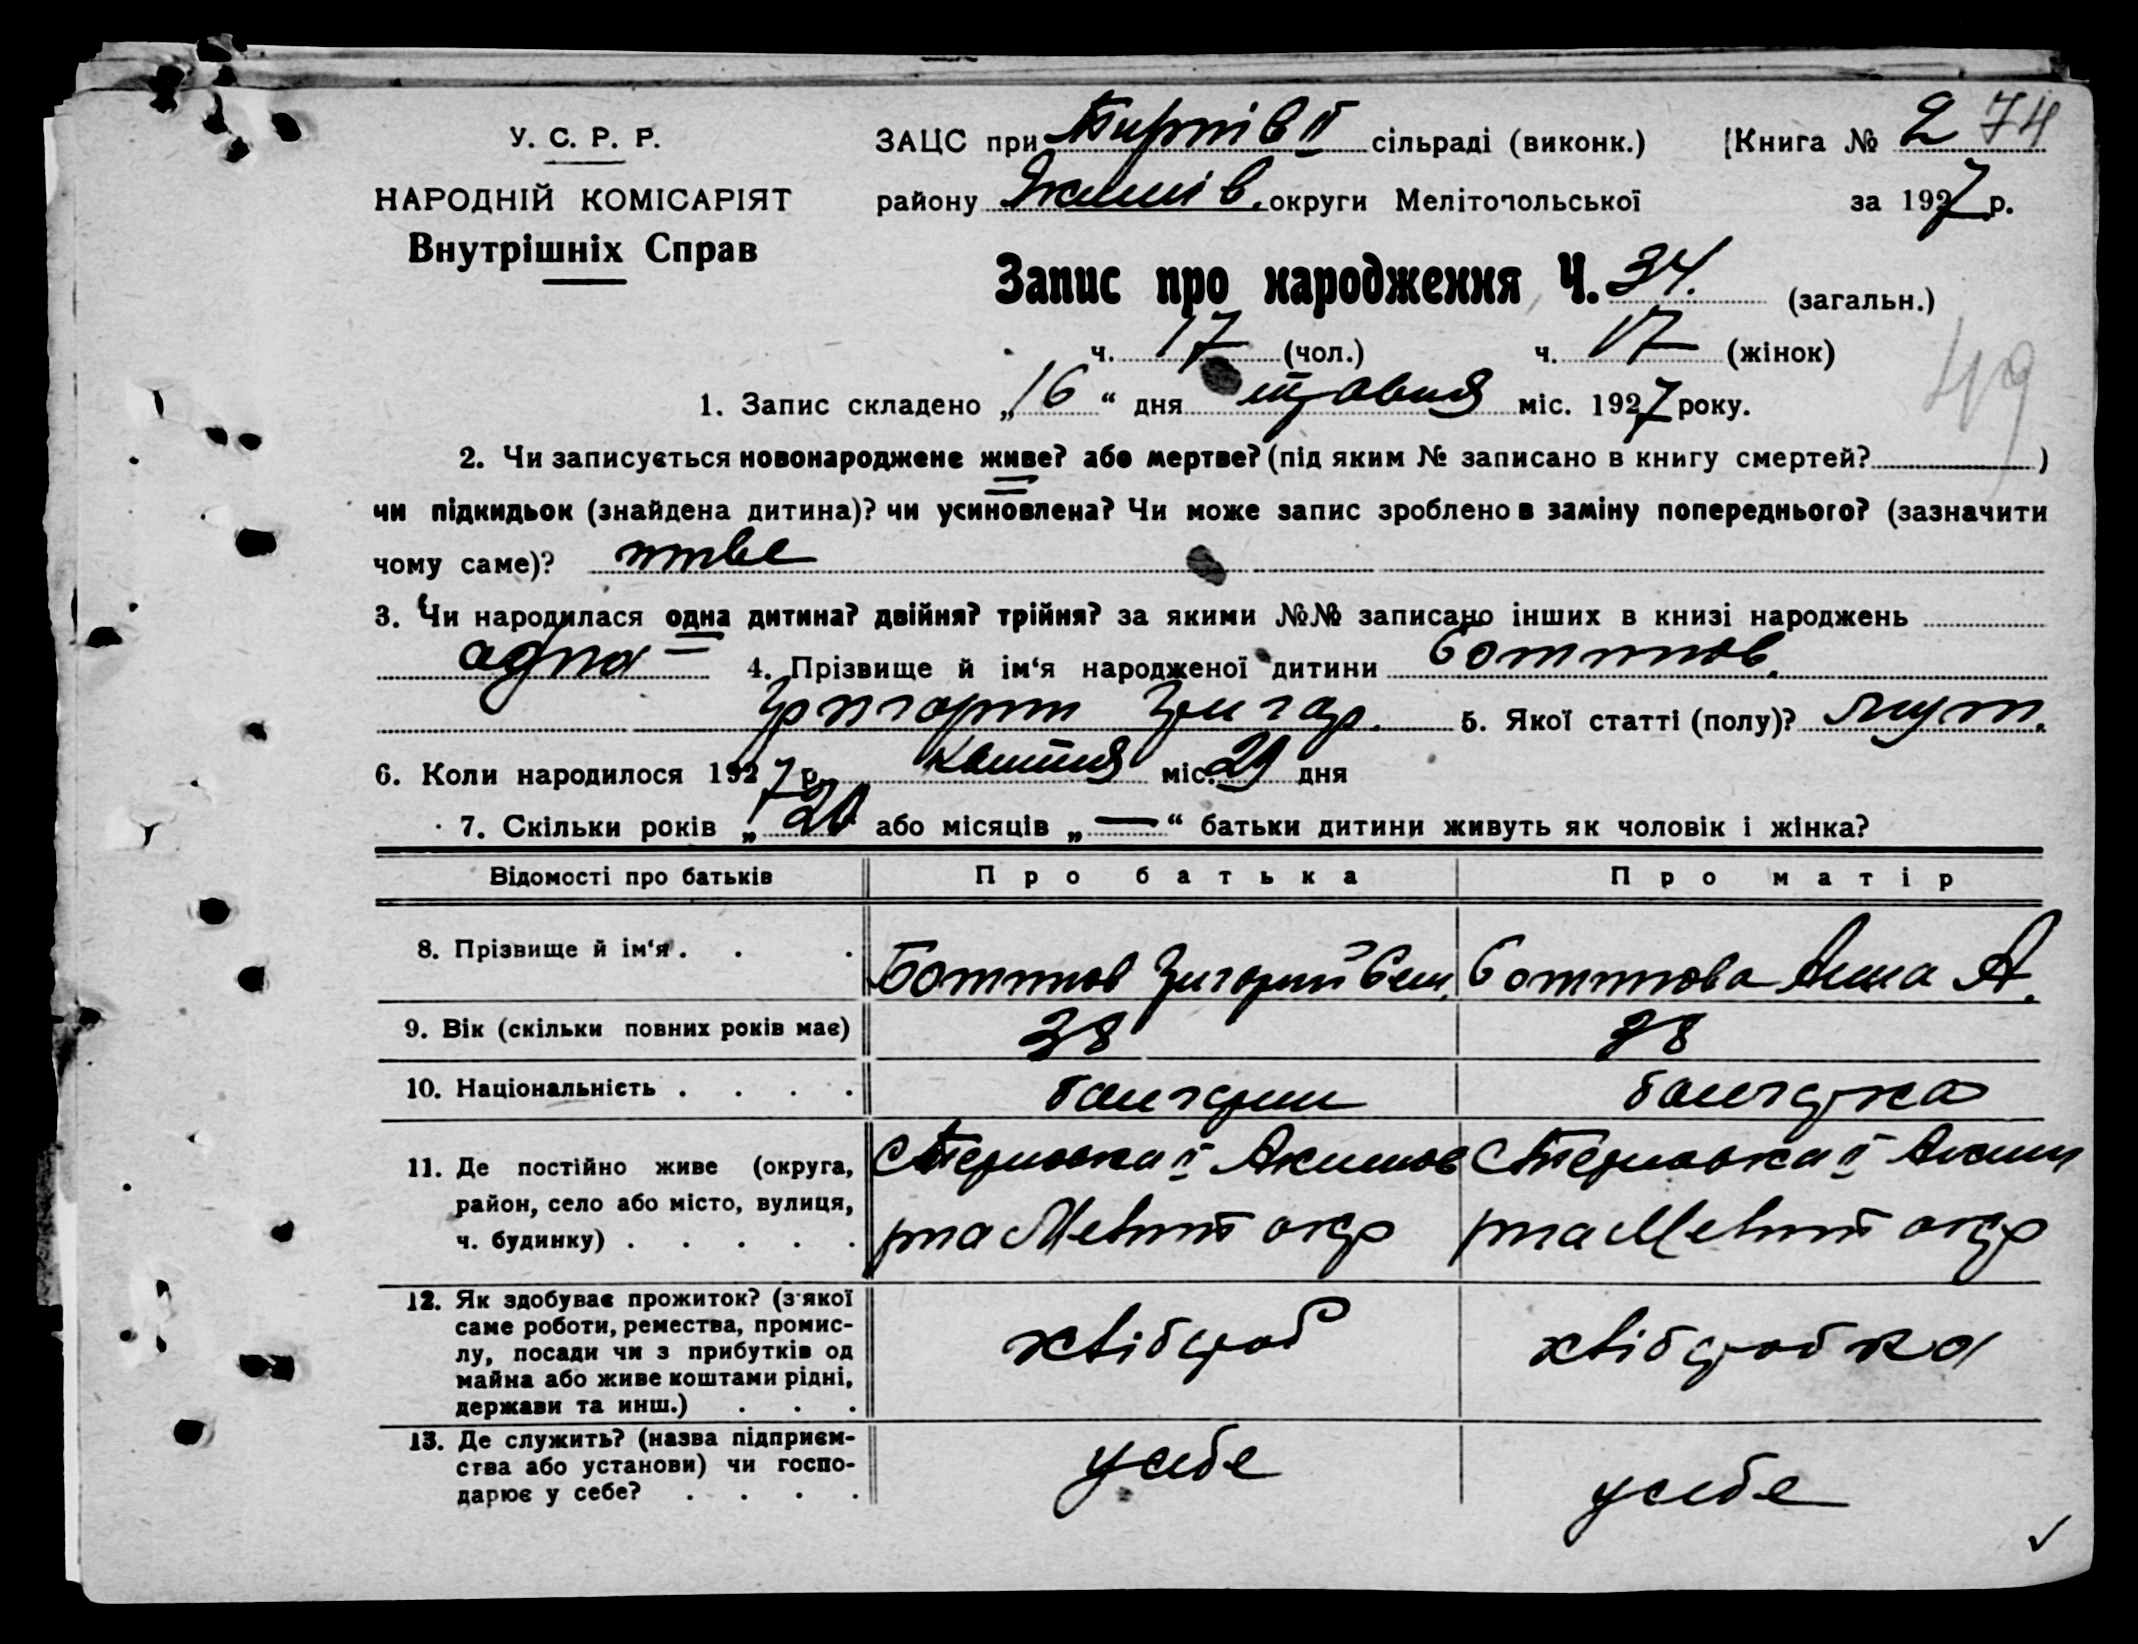 У. С. Р. Р.
НАРОДНІЙ КОМІСАРІЯТ
Внутрішніх Справ
ЗАЦС при сільраді (виконк.) Книга № 2 74
району округи Мелітопольської за 1927 р.
Запис про народження Ч. 34. (загальн.)
ч. 17 (чол.) ч. 17 (жінок)
49
1. Запис складено „16“ дня травня міс. 1927 року.
2. Чи записується новонароджене живе? або мертве? (під яким № записано в книгу смертей? )
чи підкидьок (знайдена дитина)? чи усиновлена? Чи може запис зроблено в заміну попереднього? (зазначити
чому саме)?
3. Чи народилася одна дитина? двійня? трійня? за якими №№ записано інших в книзі народжень
одна 4. Прізвище й ім‘я народженої дитини
Григорій Григор. 5. Якої статті (полу)?
6. Коли народилося 1927 р. квітня міс. 29 дня
7. Скільки років „20 або місяців „—“ батьки дитини живуть як чоловік і жінка?
Відомості про батьків Про батька Про матір
8. Прізвище й ім‘я . . . Григорий Анна А.
9. Вік (скільки повних років має) 38 38
10. Національність . . . . болгарин болгарка
11. Де постійно живе (округа, район, село або місто, вулиця, ч. будинку) . . . . . II Акимов II Аким
р на Меліт окр р на Меліт окр
12. Як здобуває прожиток? (з якої саме роботи, ремества, промислу, посади чи з прибутків од майна або живе коштами рідні, держави та инш.) . . . хлібороб хліборобка
13. Де служить? (назва підприємства або установи) чи господарює у себе? . . . . у себе у себе